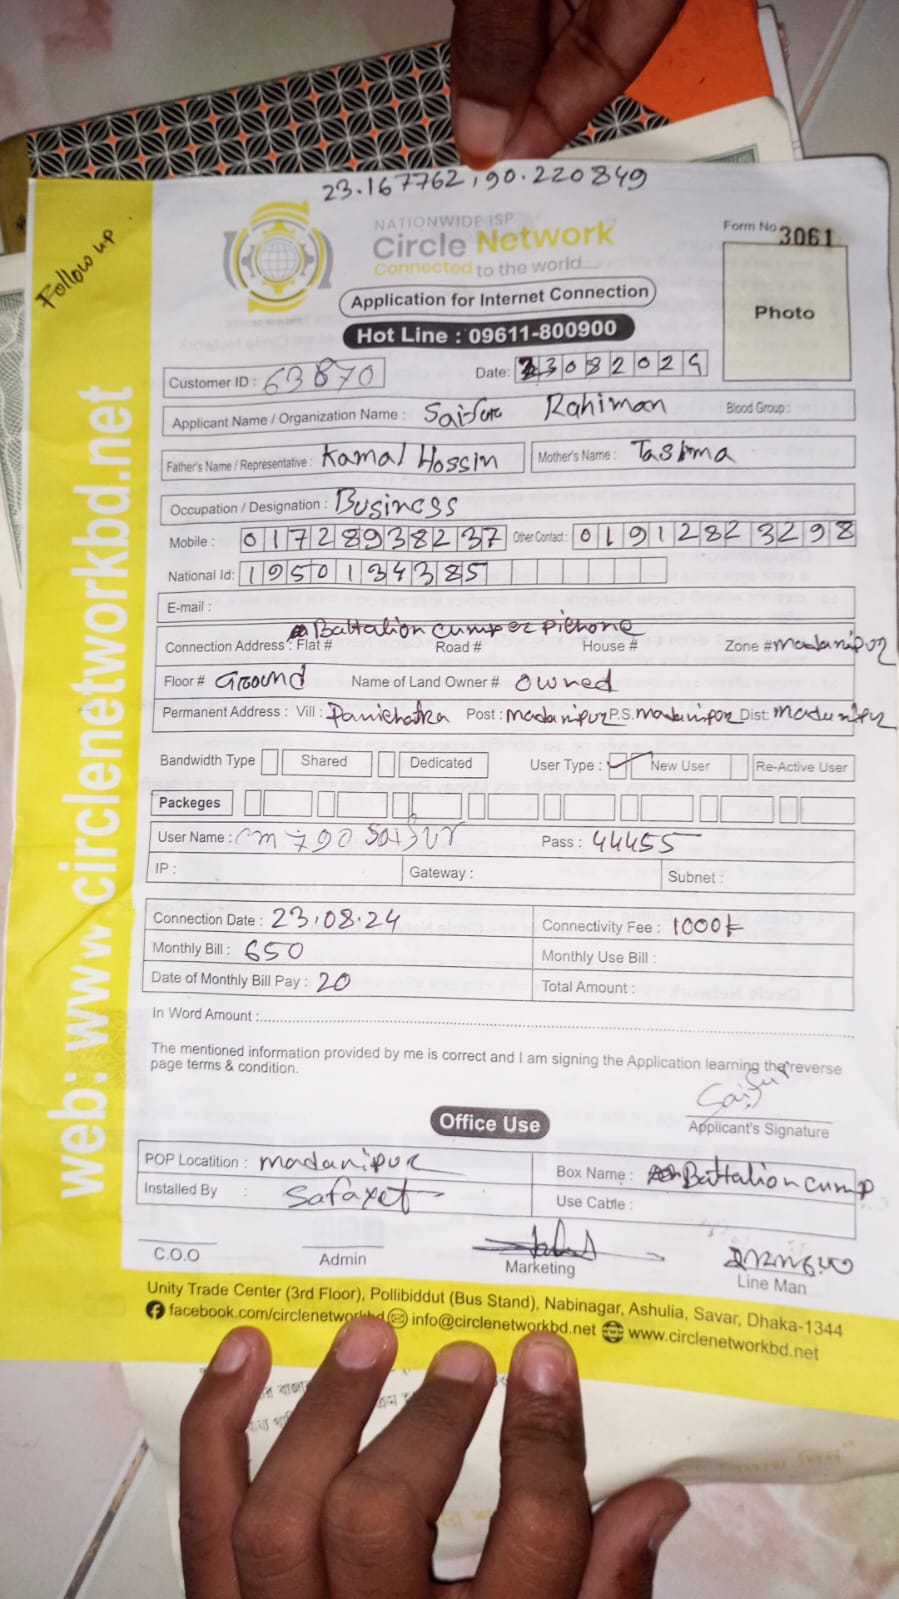 23.167762, 90.220849
Follow up
NATIONWIDE ISP
Circle Network
Connected to the world....
Form No 3061
Photo
Application for Internet Connection
Hot Line : 09611-800900
Customer ID : 63870
Date: 23082024
Applicant Name / Organization Name : Saifur Rahiman Blood Group :
Father's Name / Representative : Kamal Hossin Mother's Name : Taslima
Occupation / Designation : Business
Mobile : 01728938237 Other Contact : 01912823298
National Id: 1950134385
E-mail :
Battalion cump er pichone
Connection Address : Flat # Road # House # Zone # madanipur
Floor # Ground Name of Land Owner # owned
Permanent Address : Vill : Panichatra Post : madanipur P.S. madanipur Dist: madanipur
Bandwidth Type Shared Dedicated User Type : New User Re-Active User
Packeges
User Name : cm 790 saifur Pass : 44455
IP : Gateway : Subnet :
Connection Date : 23.08.24 Connectivity Fee : 1000
Monthly Bill : 650 Monthly Use Bill :
Date of Monthly Bill Pay : 20 Total Amount :
In Word Amount :
The mentioned information provided by me is correct and I am signing the Application learning the reverse
page terms & condition.
Saifur
Applicant's Signature
Office Use
POP Locatition : madanipur Box Name : Battalion cump
Installed By : Safayet Use Cable :
C.O.O Admin Marketing Line Man
Unity Trade Center (3rd Floor), Pollibiddut (Bus Stand), Nabinagar, Ashulia, Savar, Dhaka-1344
facebook.com/circlenetworkbd info@circlenetworkbd.net www.circlenetworkbd.net
web: www.circlenetworkbd.net